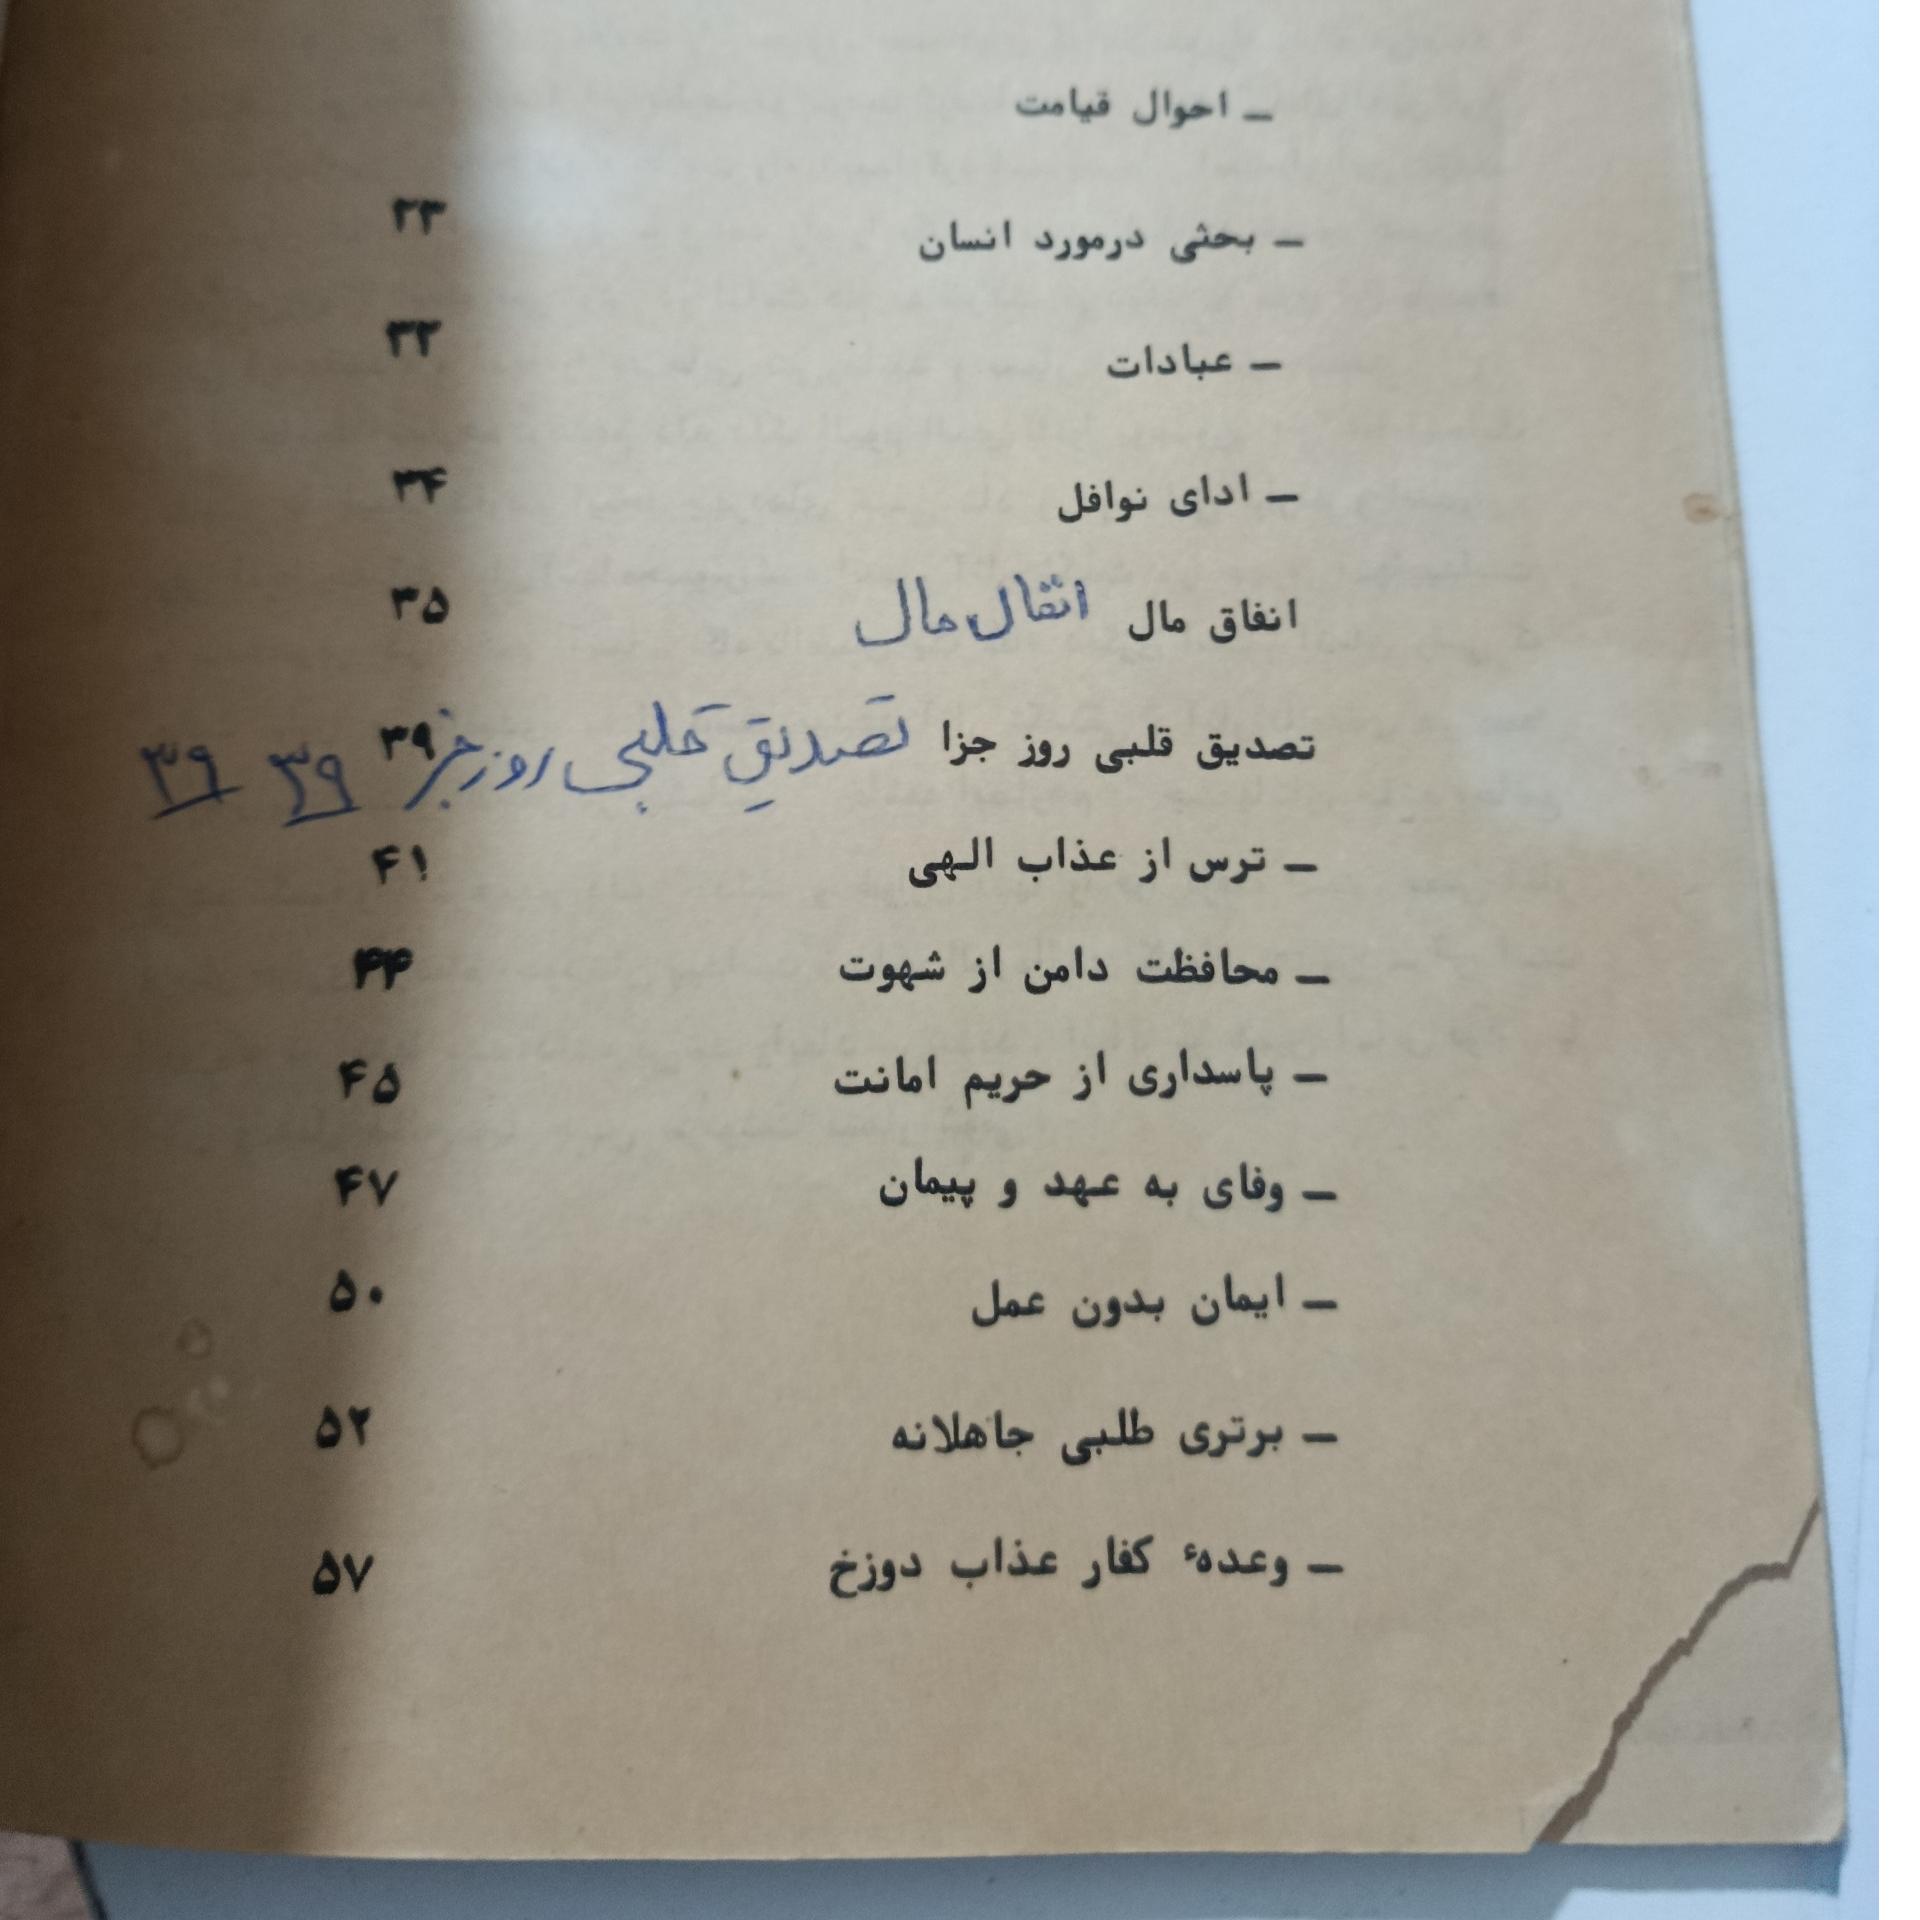 ـ احوال قیامت
ـ بحثی درمورد انسان ۲۳
ـ عبادات ۳۲
ـ ادای نوافل ۳۴
انفاق مال انفال مال ۳۵
تصدیق قلبی روز جزا تصدیق قلبی روز جز ۳۹ ۳۹ ۳۹
ـ ترس از عذاب الهی ۴۱
ـ محافظت دامن از شهوت ۴۴
ـ پاسداری از حریم امانت ۴۵
ـ وفای به عهد و پیمان ۴۷
ـ ایمان بدون عمل ۵۰
ـ برتری طلبی جاهلانه ۵۲
ـ وعدهٔ کفار عذاب دوزخ ۵۷